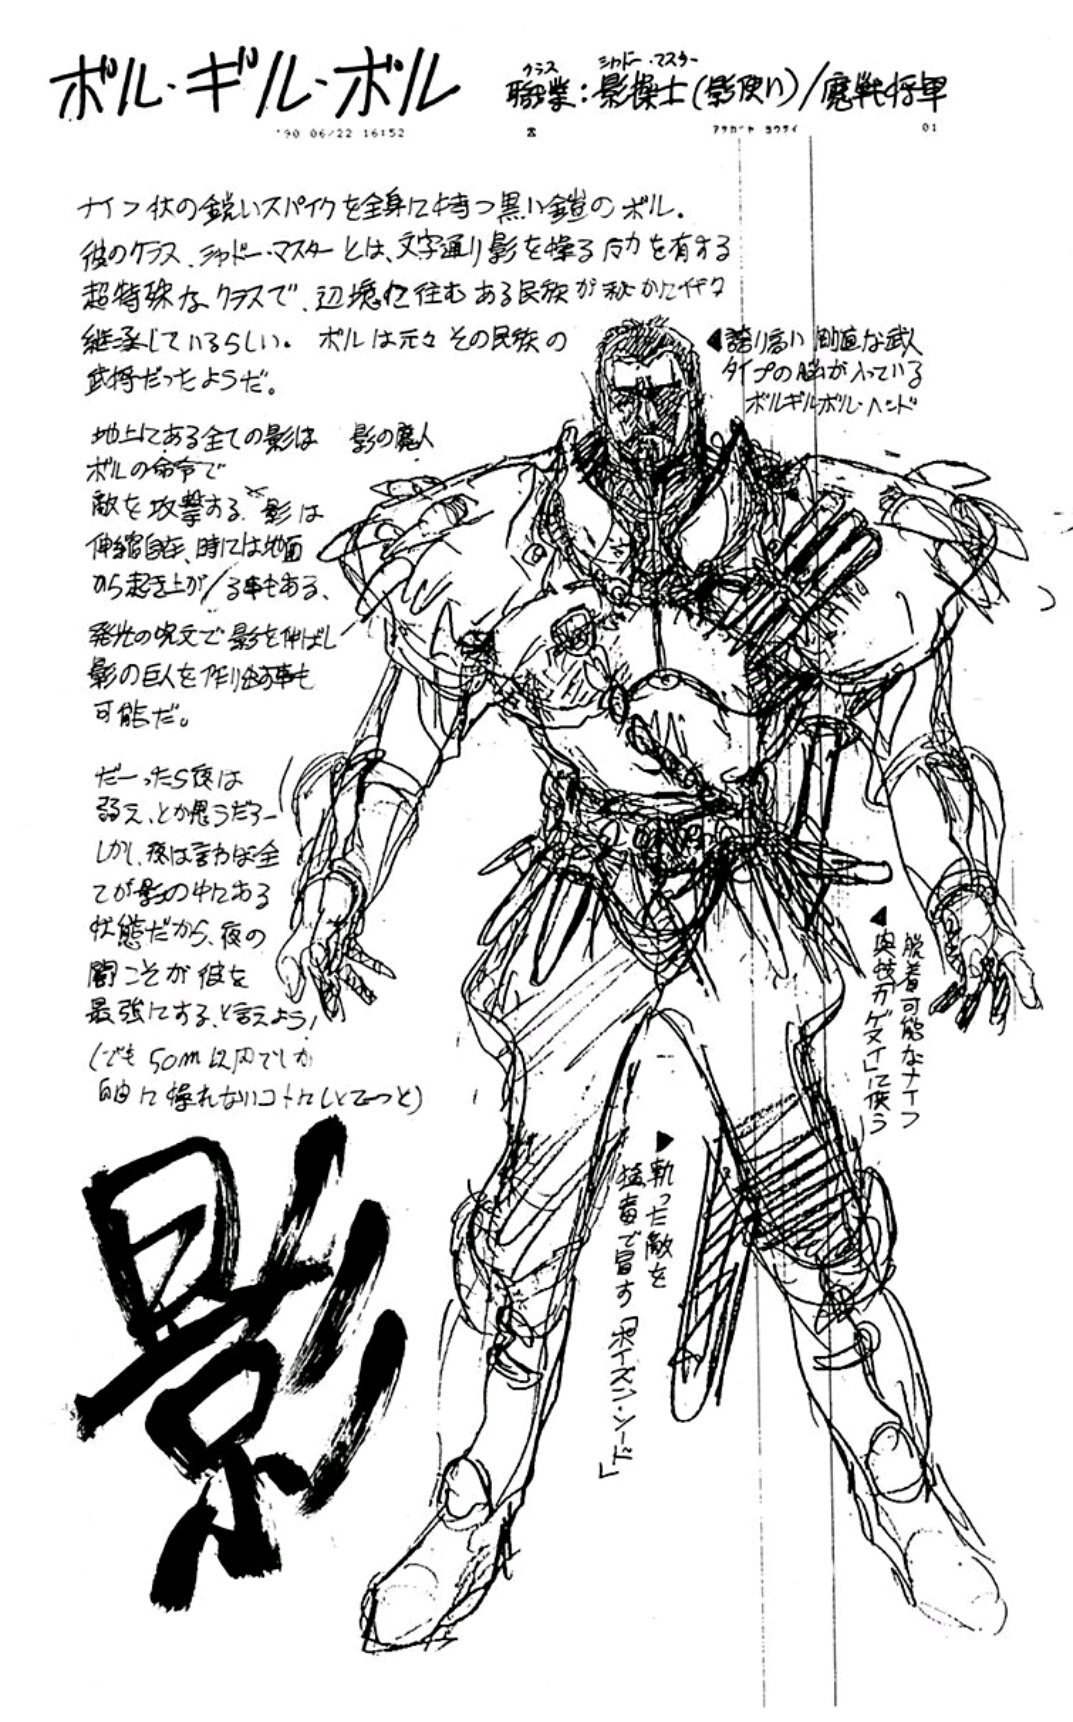 ボル・ギル・ボル
クラス シャドー・マスター
職業:影操士(影使い)/魔戦将軍
'90 06/22 16:52
アサガヤ ヨウサイ
01
ナイフ状の鋭いスパイクを全身に持つ黒い鎧のボル。
彼のクラス、シャドー・マスターとは、文字通り影を操る力を有する
超特殊なクラスで、辺境に住むある民族が秘かに代々
継承しているらしい。 ボルは元々その民族の
武将だったようだ。
◀誇り高い剛直な武人
タイプの脳が入っている
ボルギルボル・ヘッド
地上にある全ての影は 影の魔人
ボルの命令で
敵を攻撃する、影は
伸縮自在、時には地面
から起き上がる事もある、
発光の呪文で影を伸ばし
影の巨人を作り出す事も
可能だ。
だーったら夜は
弱え、とか思うだろー
しかし、夜は言わば全
てが影の中にある
状態だから、夜の
闇こそが彼を
最強にする、と言えよう!
(でも 50m以内でしか
自由に操れないコトにしとこっと)
◀脱着可能なナイフ
奥技「カゲヌイ」に使う
▶斬った敵を
猛毒で冒す「ポイズン・ソード」
影